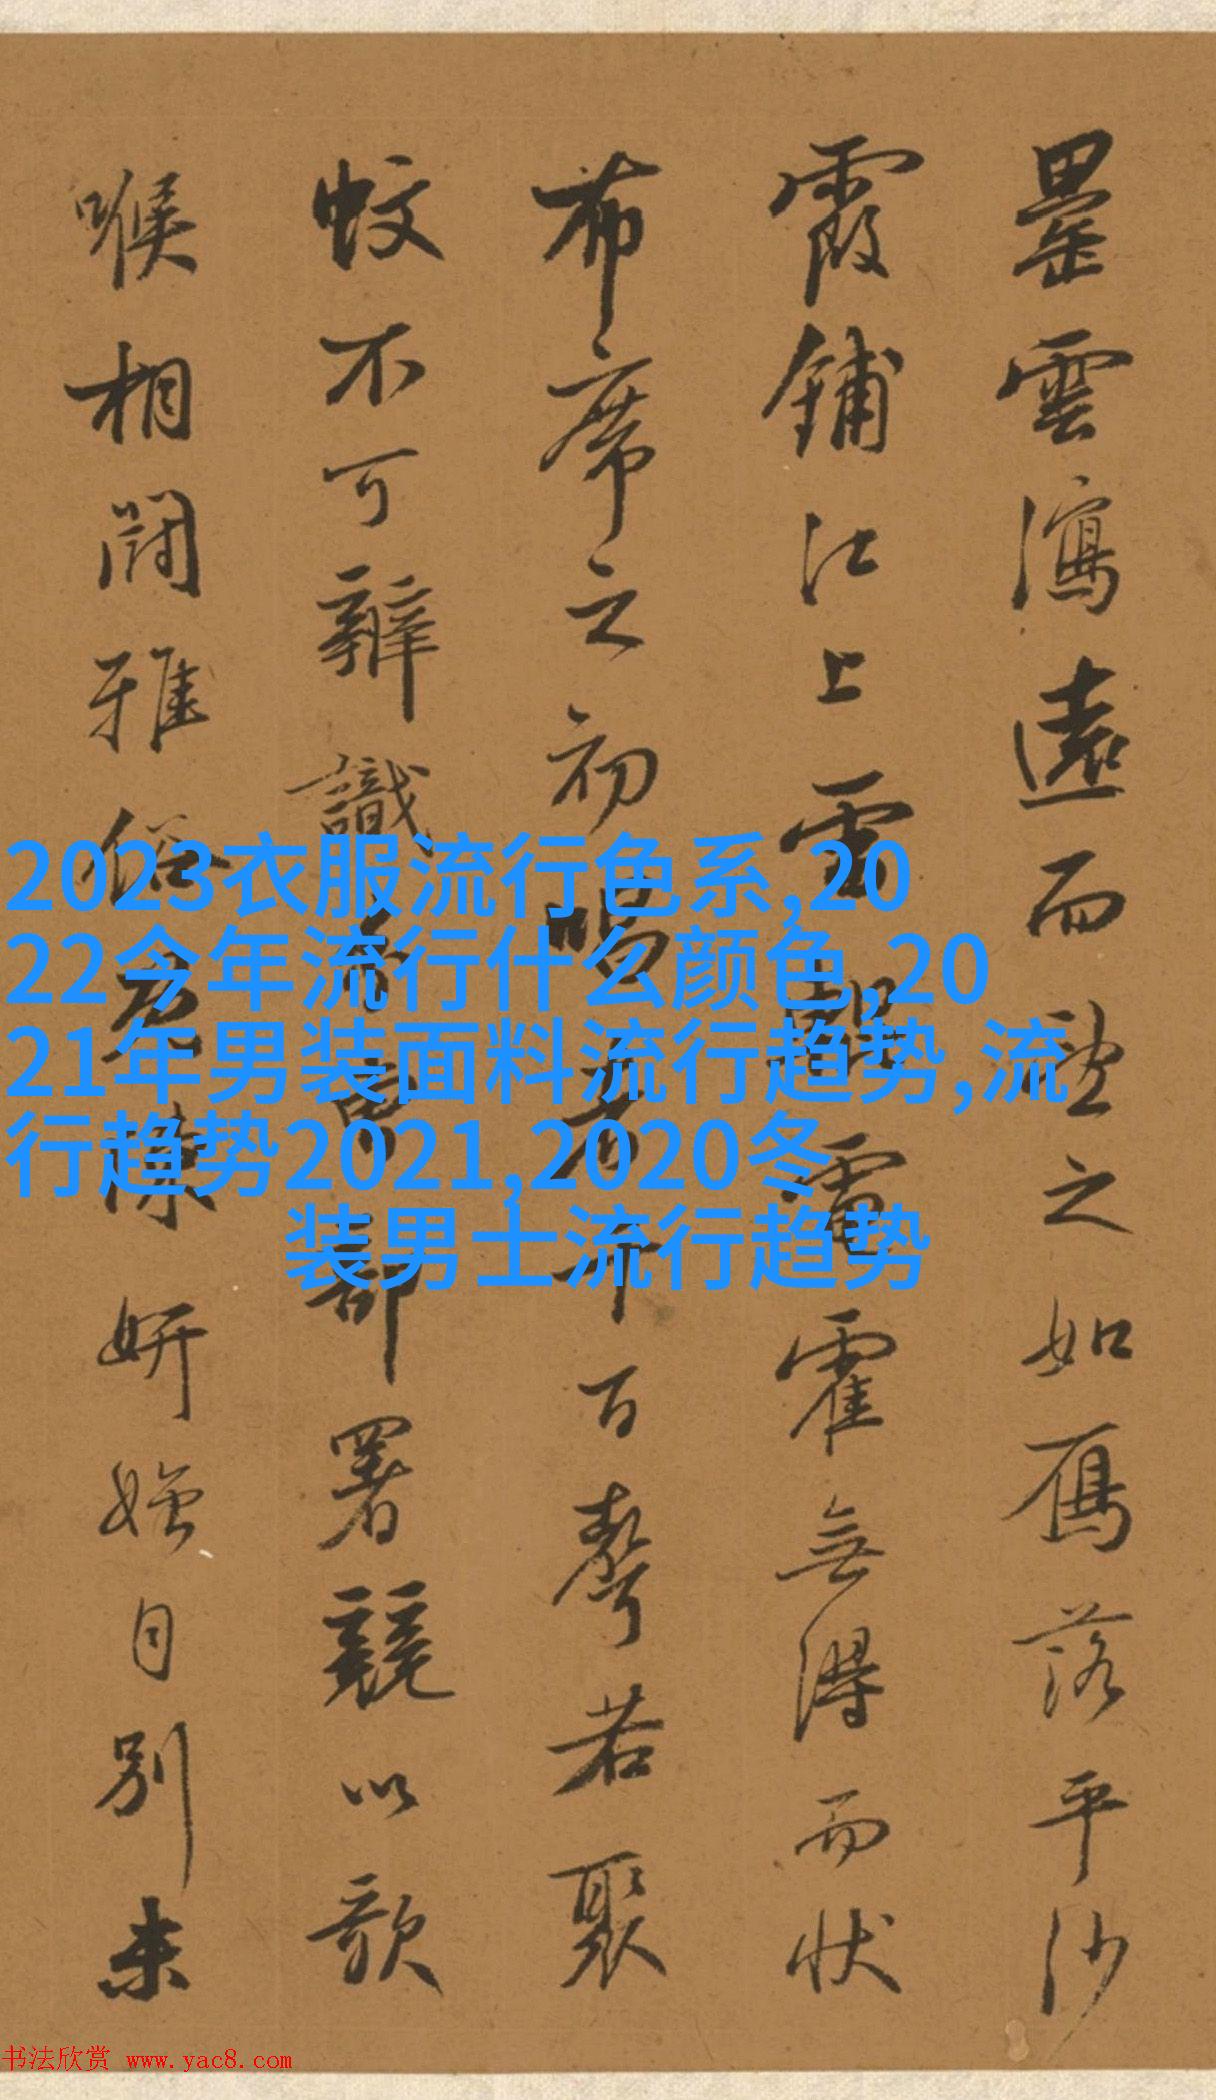 罍雲瀉遠而望之如鴈落平沙
霞鋪江上雷輥電霍無得而狀
布席之初唱者千百聲若聚
蚊不可辨識分曹部署競以歌
喉相鬪雅俗既陳妍媸自別未
2023衣服流行色系,20
22今年流行什么颜色,20
21年男装面料流行趋势,流
行趋势2021,2020冬
装男士流行趋势
书法欣赏 www.yac8.com